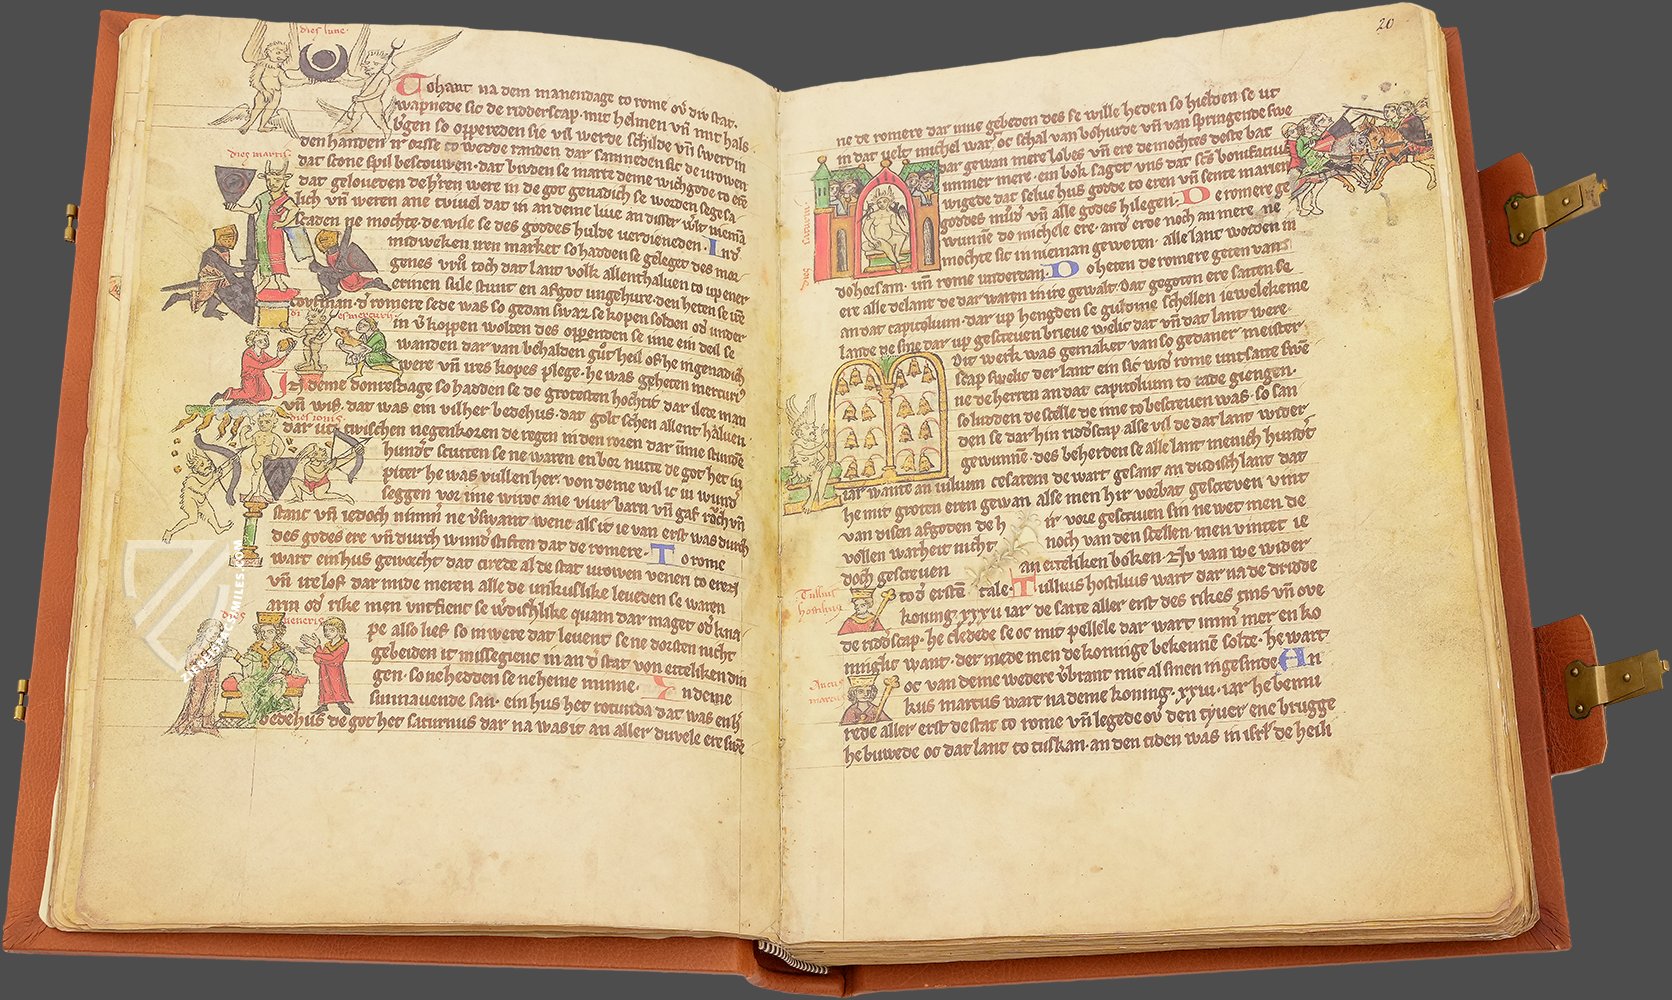 dies lune
Tohant na dem manendage to rome oů div stat.
wapnede sic de ridderscap. mit helmen vñ mit hals
b'gen so oppereden sie vil werde schilde vñ swert in
den handen ir orsse to wedde randen dar samneden sic de vrowen
dies martis
dat scone spil bescouwen. dat birden se marte deme wichgode to ere
dat geloueden de h'ren were in de got genadich se worden sege sa
lich vñ weren ane tviuel dat in an deme liue an disser w'lt niemã
scaden ne mochte. de wile se des goddes hulde verdieneden. In d'
midweken iren market so hadden se geleget des mor
genes vrů toch dat lant volk allenthaluen to up ener
erinen sule stunt en afgot ungehure. den heten se ire
copman. d' romere sede was so gedan swaz se kopen solden od' under
dies mercurii
in v'koppen wolten des oppenden se ime ein deil se
wanden dar van behalden gůt heil of he in genadich
were vñ ires kopes plege. he was geheten mercuri'
In deme donresdage so hadden se de grotesten hochtit dar ilete man
vñ wif. dat was ein vil her bedehus. dat golt schen allent haluen
dies iovis
dar uz. twischen negenkoren de regen in den roren dar ũme stunden
hund't scutten se ne waren en bor nutte de got het iu
piter he was vullen her. von deme wil ic iu wund'
seggen vor ime wiroc ane viur barn vñ gaf roch vñ
stanc vñ iedoch nimm' ne v'swant wene als it ie van erst was durch
des godes ere vñ durch wund' stiften dat de romere. To rome
wart ein hus geworcht dat cirede al de stat vrowen veneri to eren
vñ ire lof dar mide meren alle de unkuslike leueden se waren
arm od' rike men untfienc se w'dichlike quam dar maget od' kna
dies veneris
pe also lief so in were dat leuent se ne dorsten nicht
gebeiden it missegienc in an d' stat von eiteliken din
gen. so nehedden se neheine minne. In deme
sunnauende san. ein hus het roturda dat was en h'
bedehus de got het saturnus dar na was it an aller duvele ere swe
20
ne de romere dar inne gebeden des se wille heden so hielden se ut
in dat velt michel war oc schal van bohurde vñ van springende swe
dar gewan mere lobes vñ ere de mochtes deste bat
immer mere. ein bok saget uns dat scs bonifacius
wigede dat selue hus godde to eren vñ sente marien
dies saturni
goddes můd' vñ alle godes hilegen. De romere ge
wunne do michele ere. and' erde noch an mere ne
mochte sic in nieman geweren. alle lant worden in
do horsam. vñ rome underdan. Do heten de romere geten van
ere alle de lant de dar waren in ire gewalt. Dat gegoten ere satten se
an dat capitolium. dar up hengden se guldine schellen iewelekeme
lande de sine dar up gescreuen brieue welic dat vñ dat lant were.
Dit werk was gemaket van so gedaner meister
scap swelic der lant ein sic wid' rome untsatte swe
ne de herren an dat capitolium to rade giengen.
so ludden de scelle de ime to bescreuen was. so san
den se dar hin ridd'scap alse vil de dat lant wider
gewunne. des beherden se alle lant menich hund't
iar wante an iulium cesarem de wart gesant an dudisch lant dat
he mit groten eren gewan alse men hir vorbat gescreuen vint
van disen afgoden de h ir vore gescreuen sin ne wet men de
vollen warheit nicht noch van den scellen men vintet ie
doch gescreuen an eiteliken boken. Nv van we wider
to d' ersten tale. Tullius hostilius wart dar na de dridde
Tullius hostilius
koning. xxxii iar de satte aller erst des rikes zins vñ ove
de ridd'scap. he cledede se oc mit pellele dar wart imm'mer en ko
ninglic want. der mede men de koninge bekennẽ solde. he wart
oc van deme wedere v'brant mit al sinen ingesinde. An
Ancus marcus
kus marcus wart na deme koning. xxiii. iar he bemu
rede aller erst de stat to rome vñ legede ou' den tyuer ene brugge
he buwede oc dat lant to tuskan. an den tiden was in isrl' de heili